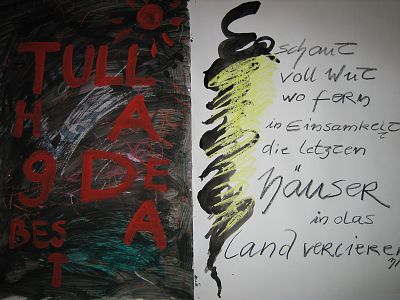 TULL
H A
9 DE
BES A
T
schaut
voll Wut
wo fern
in Einsamkeit
die letzten
Häuser
in das
Land